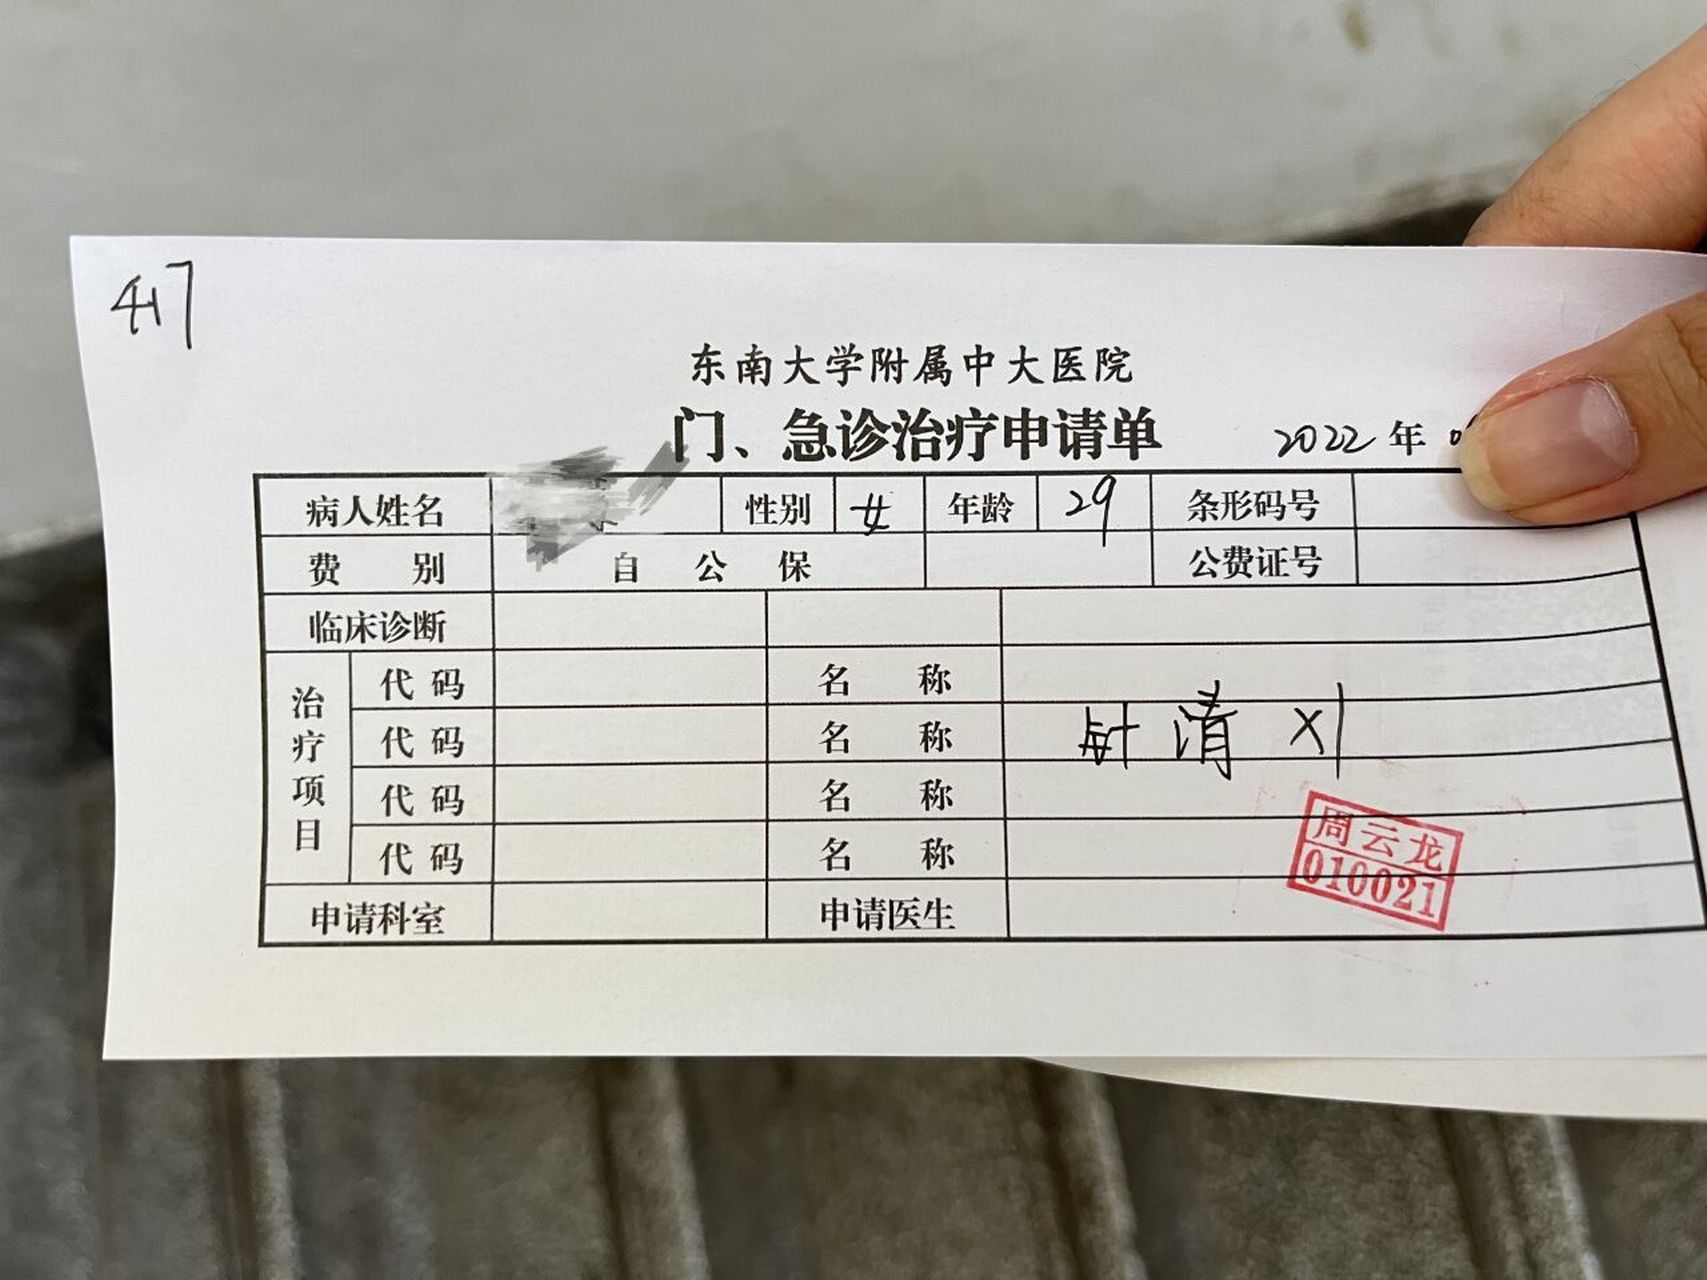 417
东南大学附属中大医院
门、急诊治疗申请单 2022年
病人姓名 性别 女 年龄 29 条形码号
费别 自 公 保 公费证号
临床诊断
治疗项目
代码 名称
代码 名称 针清 X1
代码 名称
代码 名称
周云龙
010021
申请科室 申请医生